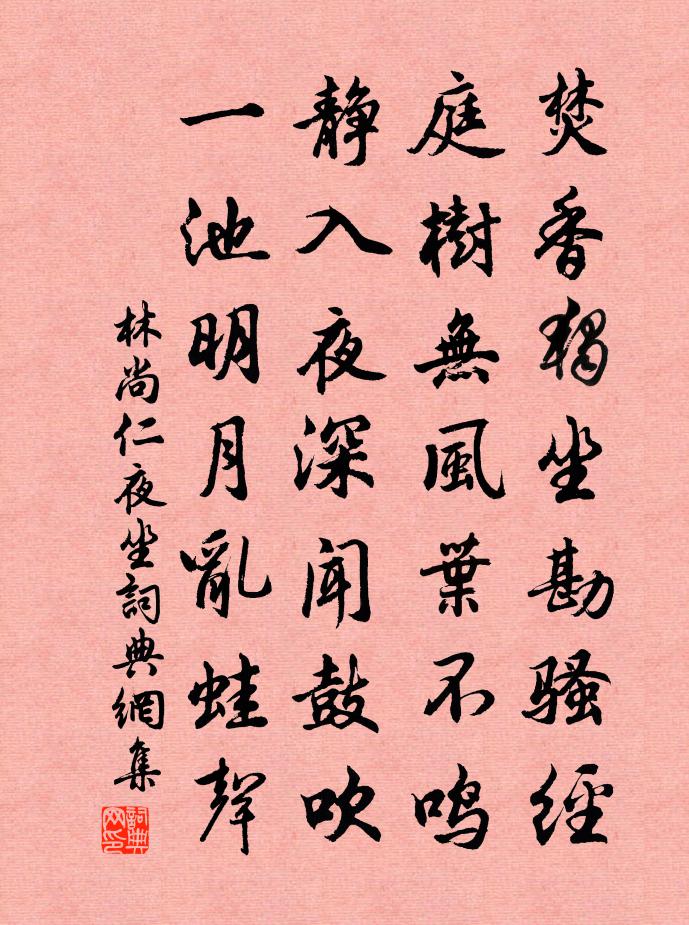 焚香獨坐勘騷經
庭樹無風葉不鳴
静入夜深聞鼓吹
一池明月亂蛙聲
林尚仁夜坐詞典網集
詞典网印